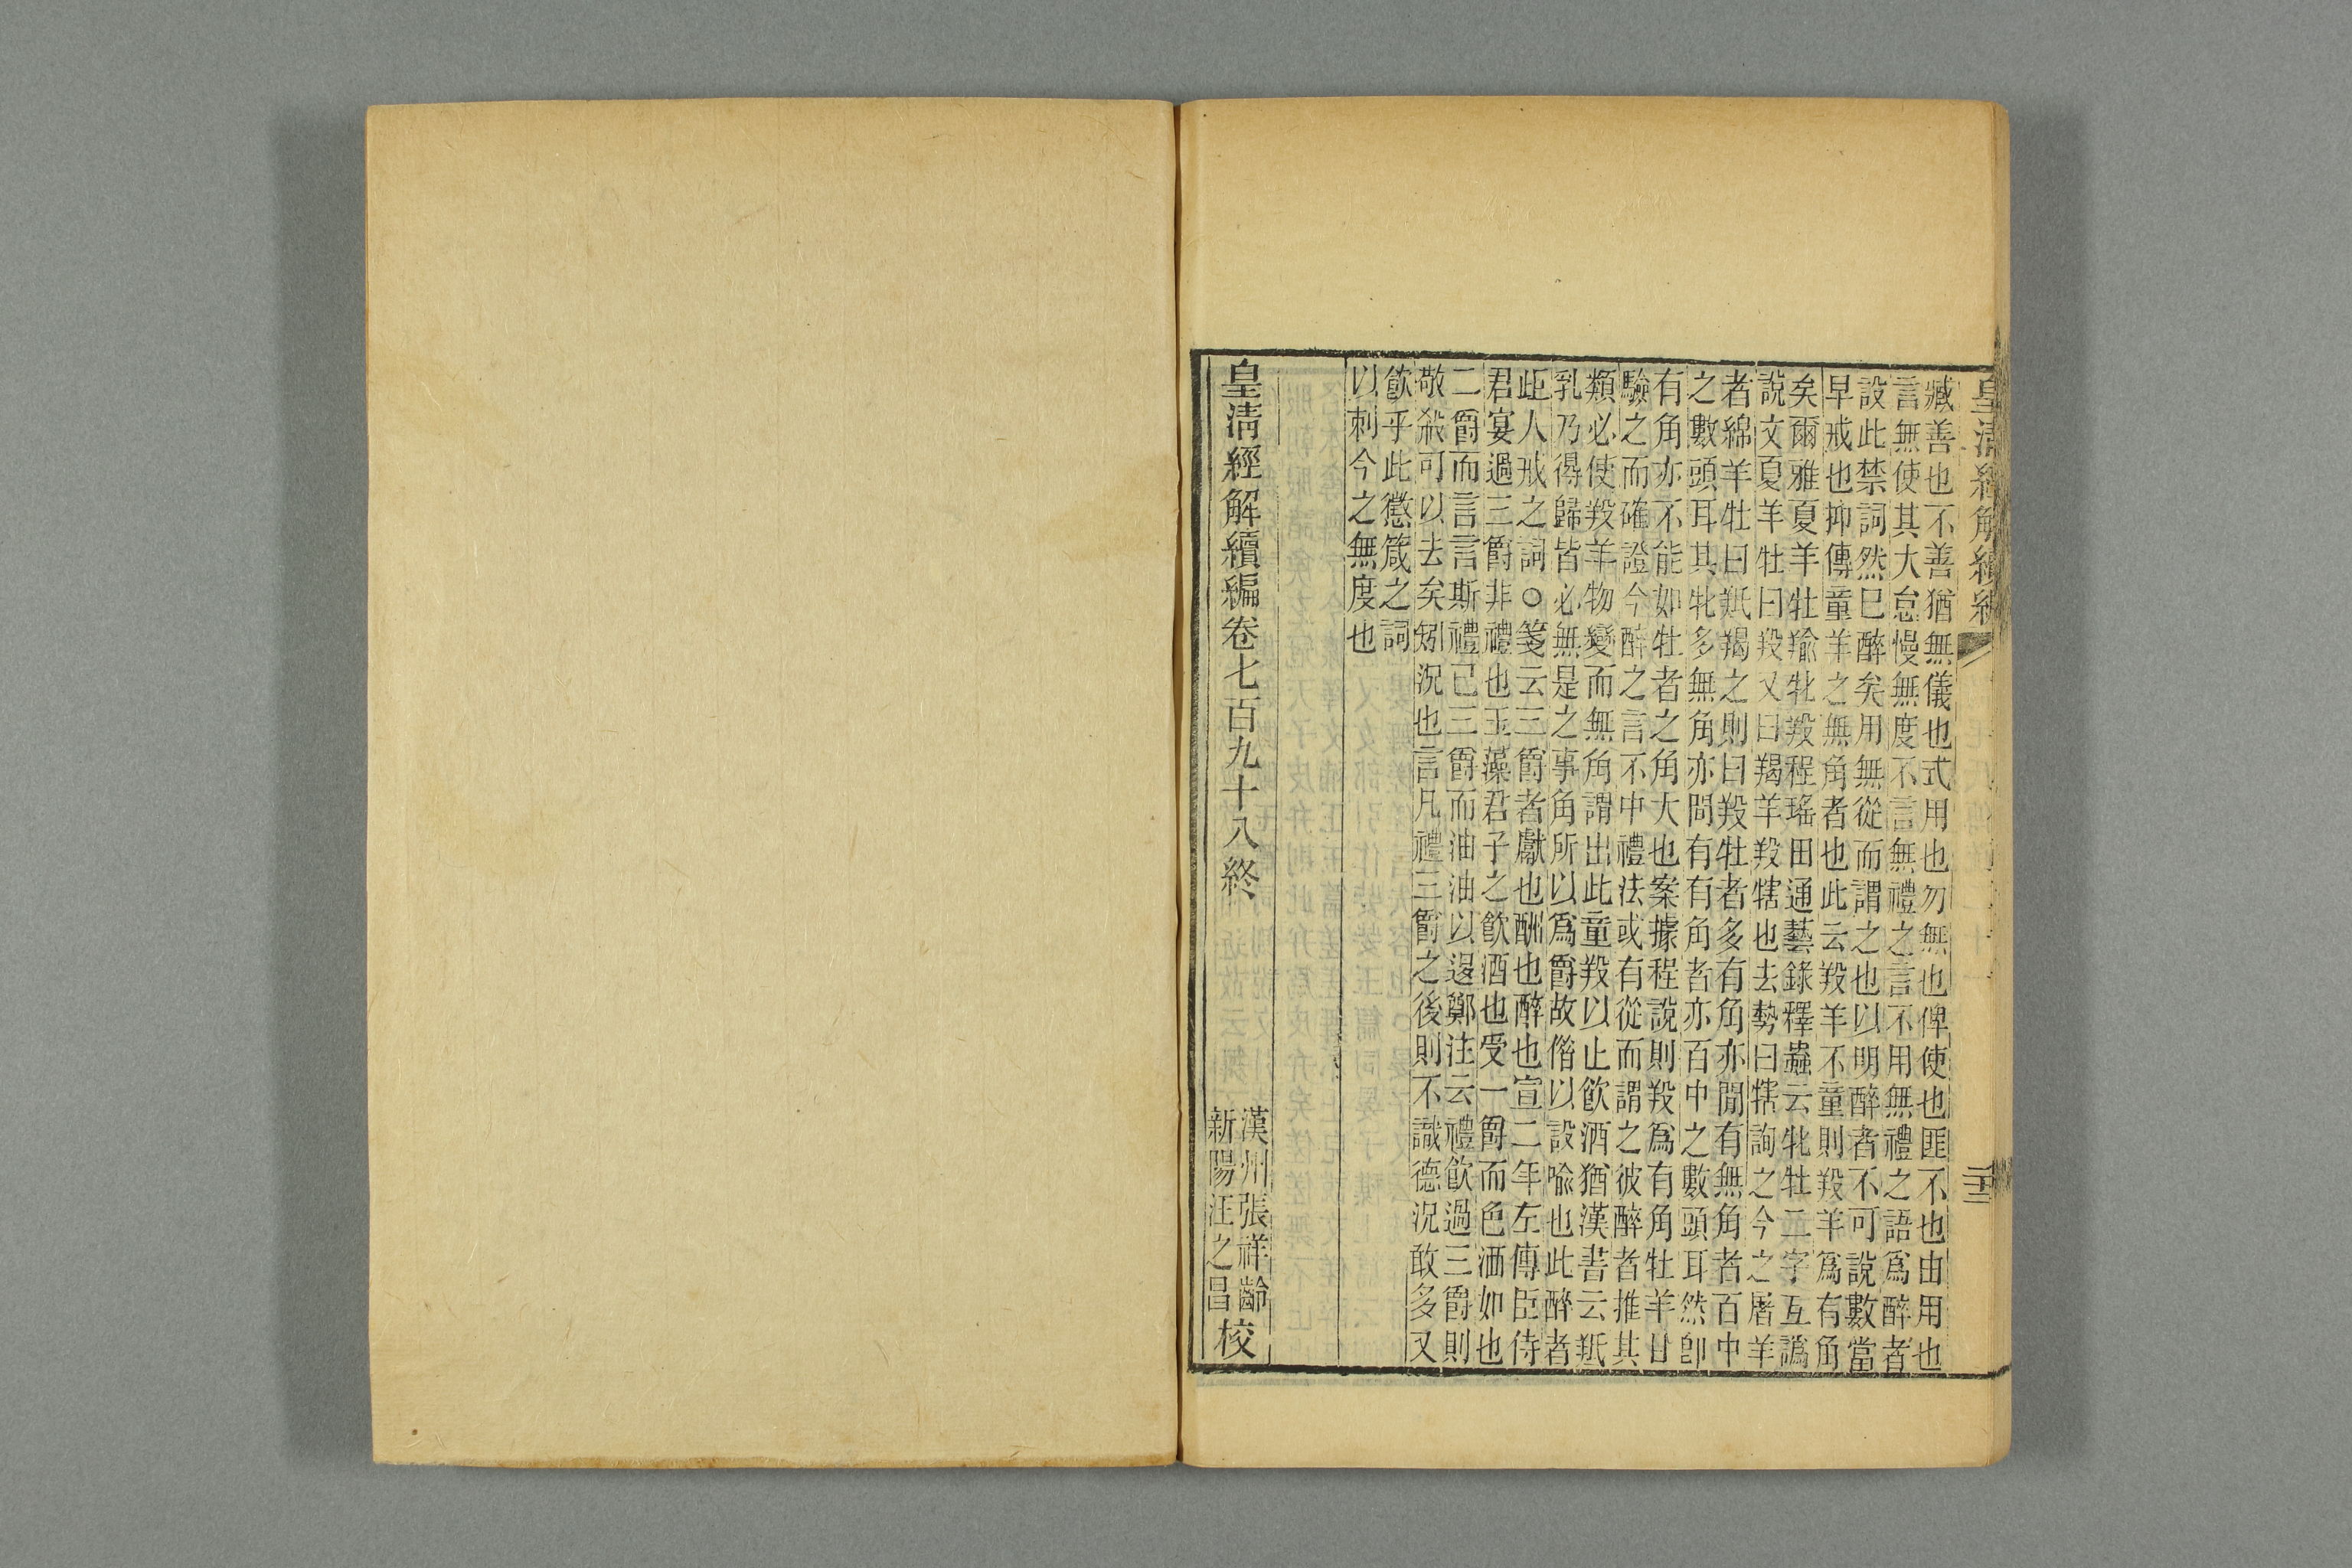 皇清經解續編
臧善也不善猶無儀也式用也勿無也俾使也匪不也由用也
言無使其大怠慢無度不言無禮之言不用無禮之語爲醉者
設此禁詞然巳醉矣用無從而謂之也以明醉者不可說數當
早戒也抑傳童羊之無角者也此云羖羊不童則羖羊爲有角
矣爾雅夏羊牡羭牝羖程瑤田通藝錄釋蟲云牝牡二字互譌
說文夏羊牡曰羖又曰羯羊羖犗也去勢曰犗詢之今之屠羊
者綿羊牡曰羝羯之則曰羖牡者多有角亦閒有無角者百中
之數頭耳其牝多無角亦閒有有角者亦百中之數頭耳然卽
有角亦不能如牡者之角大也案據程說則羖爲有角牡羊甘
驗之而確證今醉之言不中禮法或有從而謂之彼醉者推其
類必使羖羊物變而無角謂出此童羖以止飮酒猶漢書云羝
乳乃得歸皆必無是之事角所以爲爵故偕以設喩也此醉者
歫人戒之詞○箋云三爵者獻也酬也醉也宣二年左傳臣侍
君宴過三爵非禮也玉藻君子之飮酒也受一爵而色洒如也
二爵而言言斯禮已三爵而油油以退鄭注云禮飮過三爵則
敬殺可以去矣矧況也言凡禮三爵之後則不識德況敢多又
飮乎此懲箴之詞
以刺今之無度也
皇清經解續編卷七百九十八終
漢州張祥齡
新陽汪之昌校